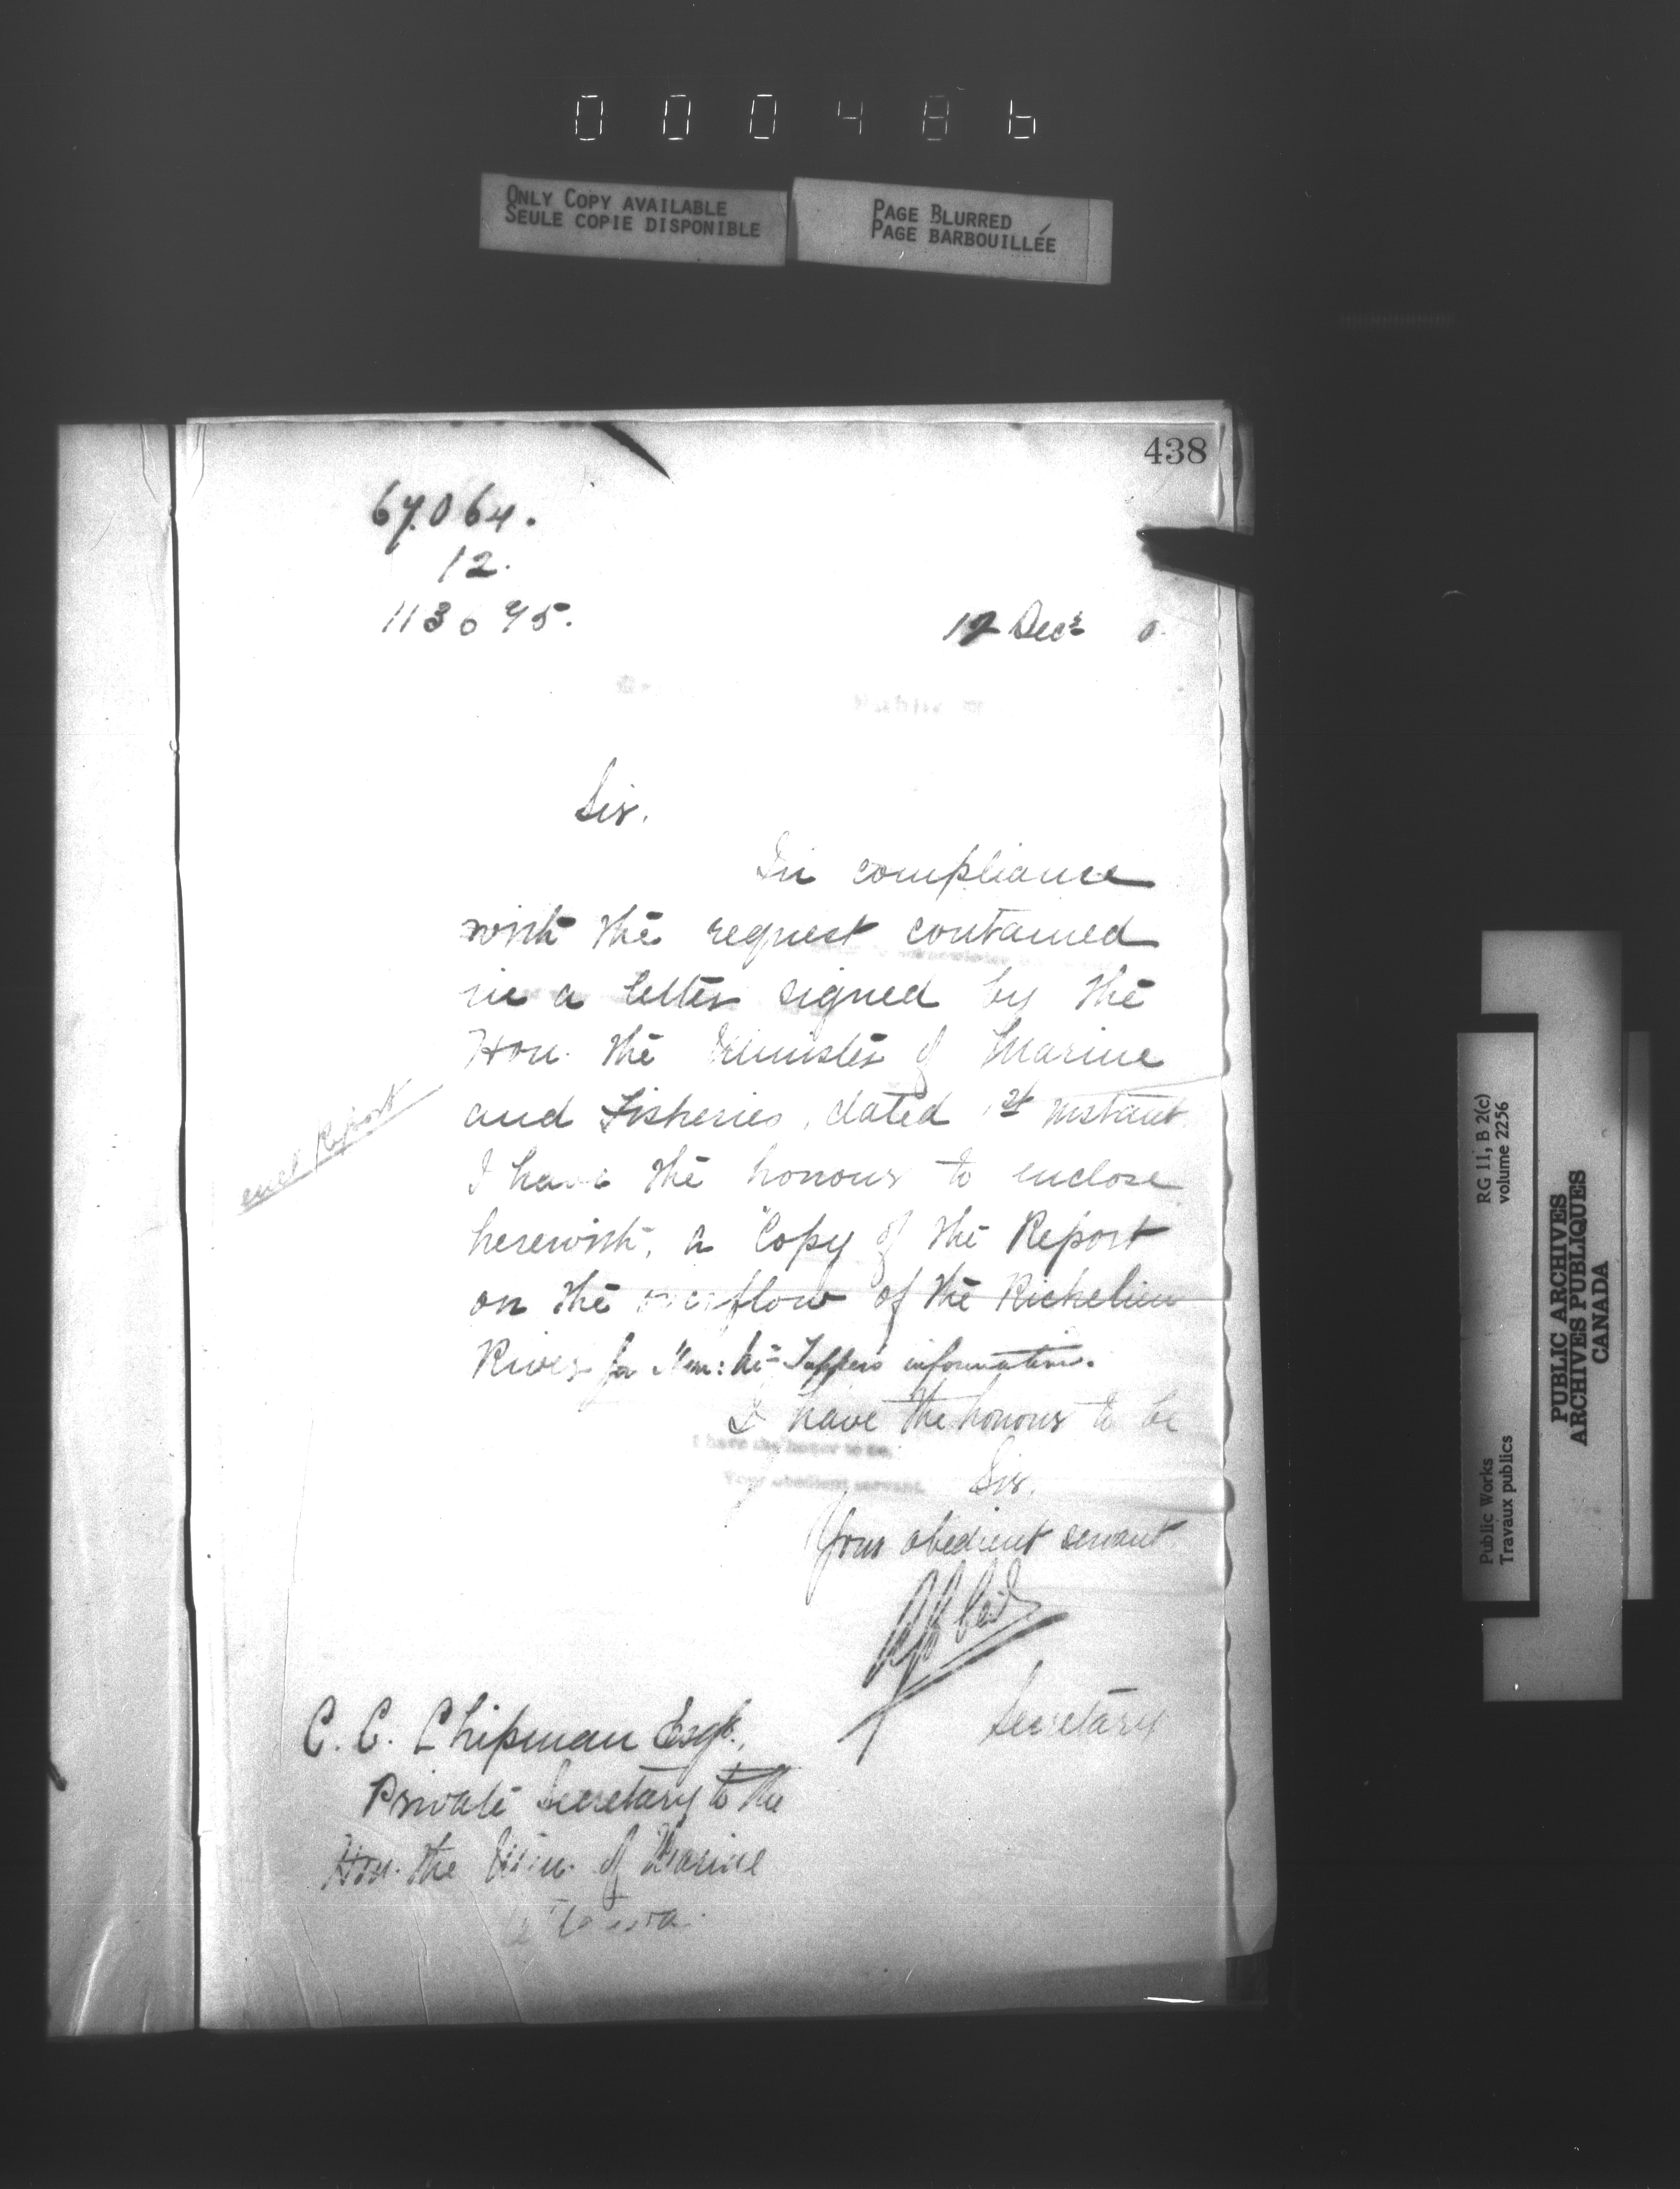 000486
ONLY COPY AVAILABLE
SEULE COPIE DISPONIBLE
PAGE BLURRED
PAGE BARBOUILLÉE
438
67064.
12.
113095.
12 Decr 0
Sir.
In compliance
with the request contained
in a letter signed by the
Hon. the Minister of Marine
and Fisheries, dated 1st instant
I have the honour to enclose
herewith, a Copy of the Report
on the overflow of the Richelieu
River for Hon: Mr Tupper's information.
encl Report
I have the honour to be
I have the honor to be,
Your obedient servant,
Sir.
Your obedient servant
Secretary
C. C. Chipman Esqr.,
Private Secretary to the
Hon. the Min. of Marine
Ottawa.
RG 11, B 2(c)
volume 2256
Public Works
Travaux publics
PUBLIC ARCHIVES
ARCHIVES PUBLIQUES
CANADA